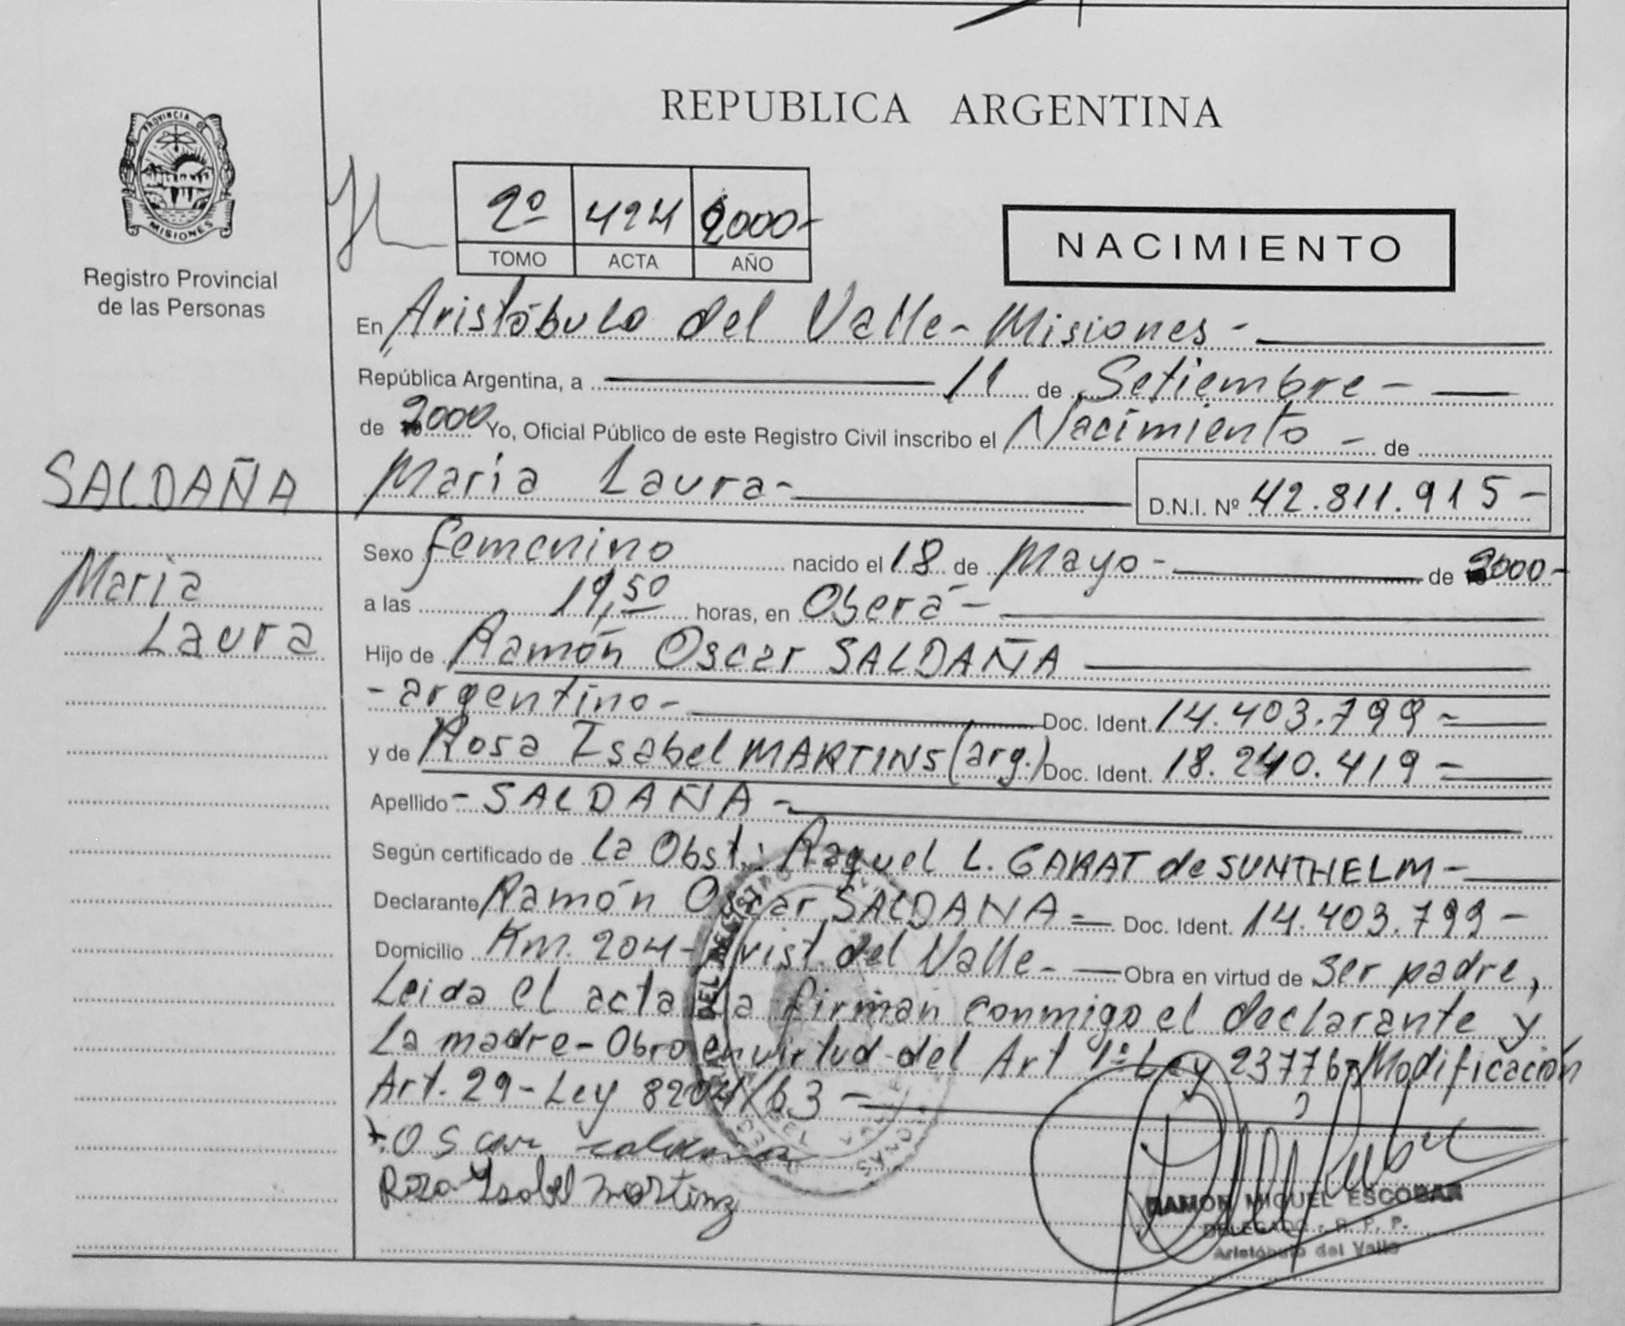 REPUBLICA ARGENTINA
PROVINCIA DE
MISIONES
Registro Provincial
de las Personas
2º 424 2000-
TOMO ACTA AÑO
NACIMIENTO
En Aristóbulo del Valle - Misiones -
República Argentina, a 11 de Setiembre -
de 2000 Yo, Oficial Público de este Registro Civil inscribo el Nacimiento - de
SALDAÑA
Maria Laura - D.N.I. Nº 42.811.915 -
Maria
Laura
Sexo femenino nacido el 18 de Mayo - de 2000 -
a las 19,50 horas, en Oberá -
Hijo de Ramón Oscar SALDAÑA
- argentino - Doc. Ident. 14.403.799 =
y de Rosa Isabel MARTINS (arg.) Doc. Ident. 18.240.419 =
Apellido - SALDAÑA -
Según certificado de la Obst.: Raquel L. GARAT de SUNTHELM -
Declarante Ramón Oscar SALDAÑA = Doc. Ident. 14.403.799 -
Domicilio Km. 204 - Arist. del Valle - Obra en virtud de ser padre,
Leida el acta la firman conmigo el declarante y
La madre - Obro en virtud del Art 1º Ley 23776 Modificación
Art. 29 - Ley 8204/63 -
Oscar
Rosa Ysabel martinz
RAMON MIGUEL ESCOBAR
DELEGADO - R. P. P.
Aristóbulo del Valle
DEL REGISTRO